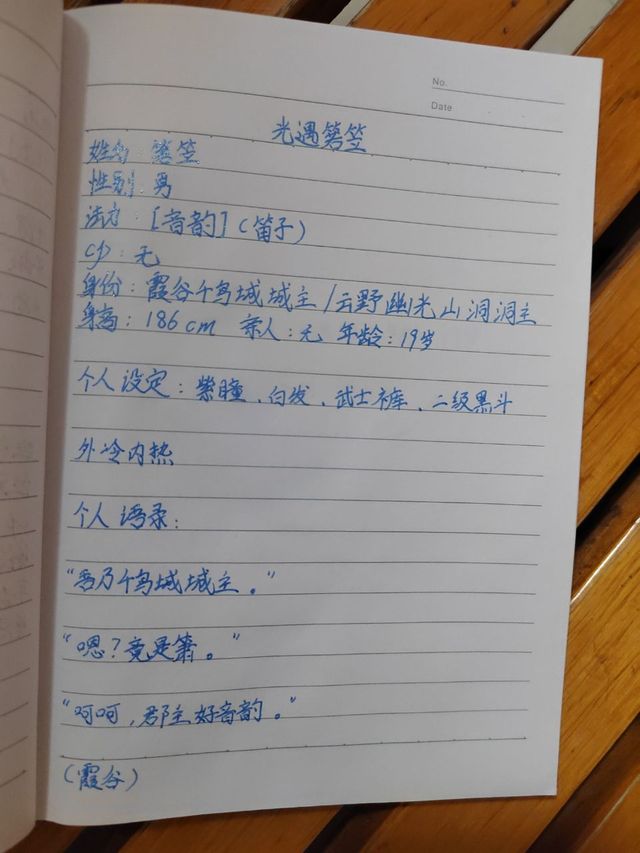 No.
Date
光遇箬笠
姓名：箬笠
性别：男
法力：[音韵]（笛子）
cp：无
身份：霞谷千鸟城城主/云野幽光山洞洞主
身高：186cm 亲人：无 年龄：19岁
个人设定：紫瞳、白发、武士裤、二级黑斗
外冷内热
个人语录：
“吾乃千鸟城城主。”
“嗯？竟是箫。”
“呵呵，郡主好音韵。”
（霞谷）